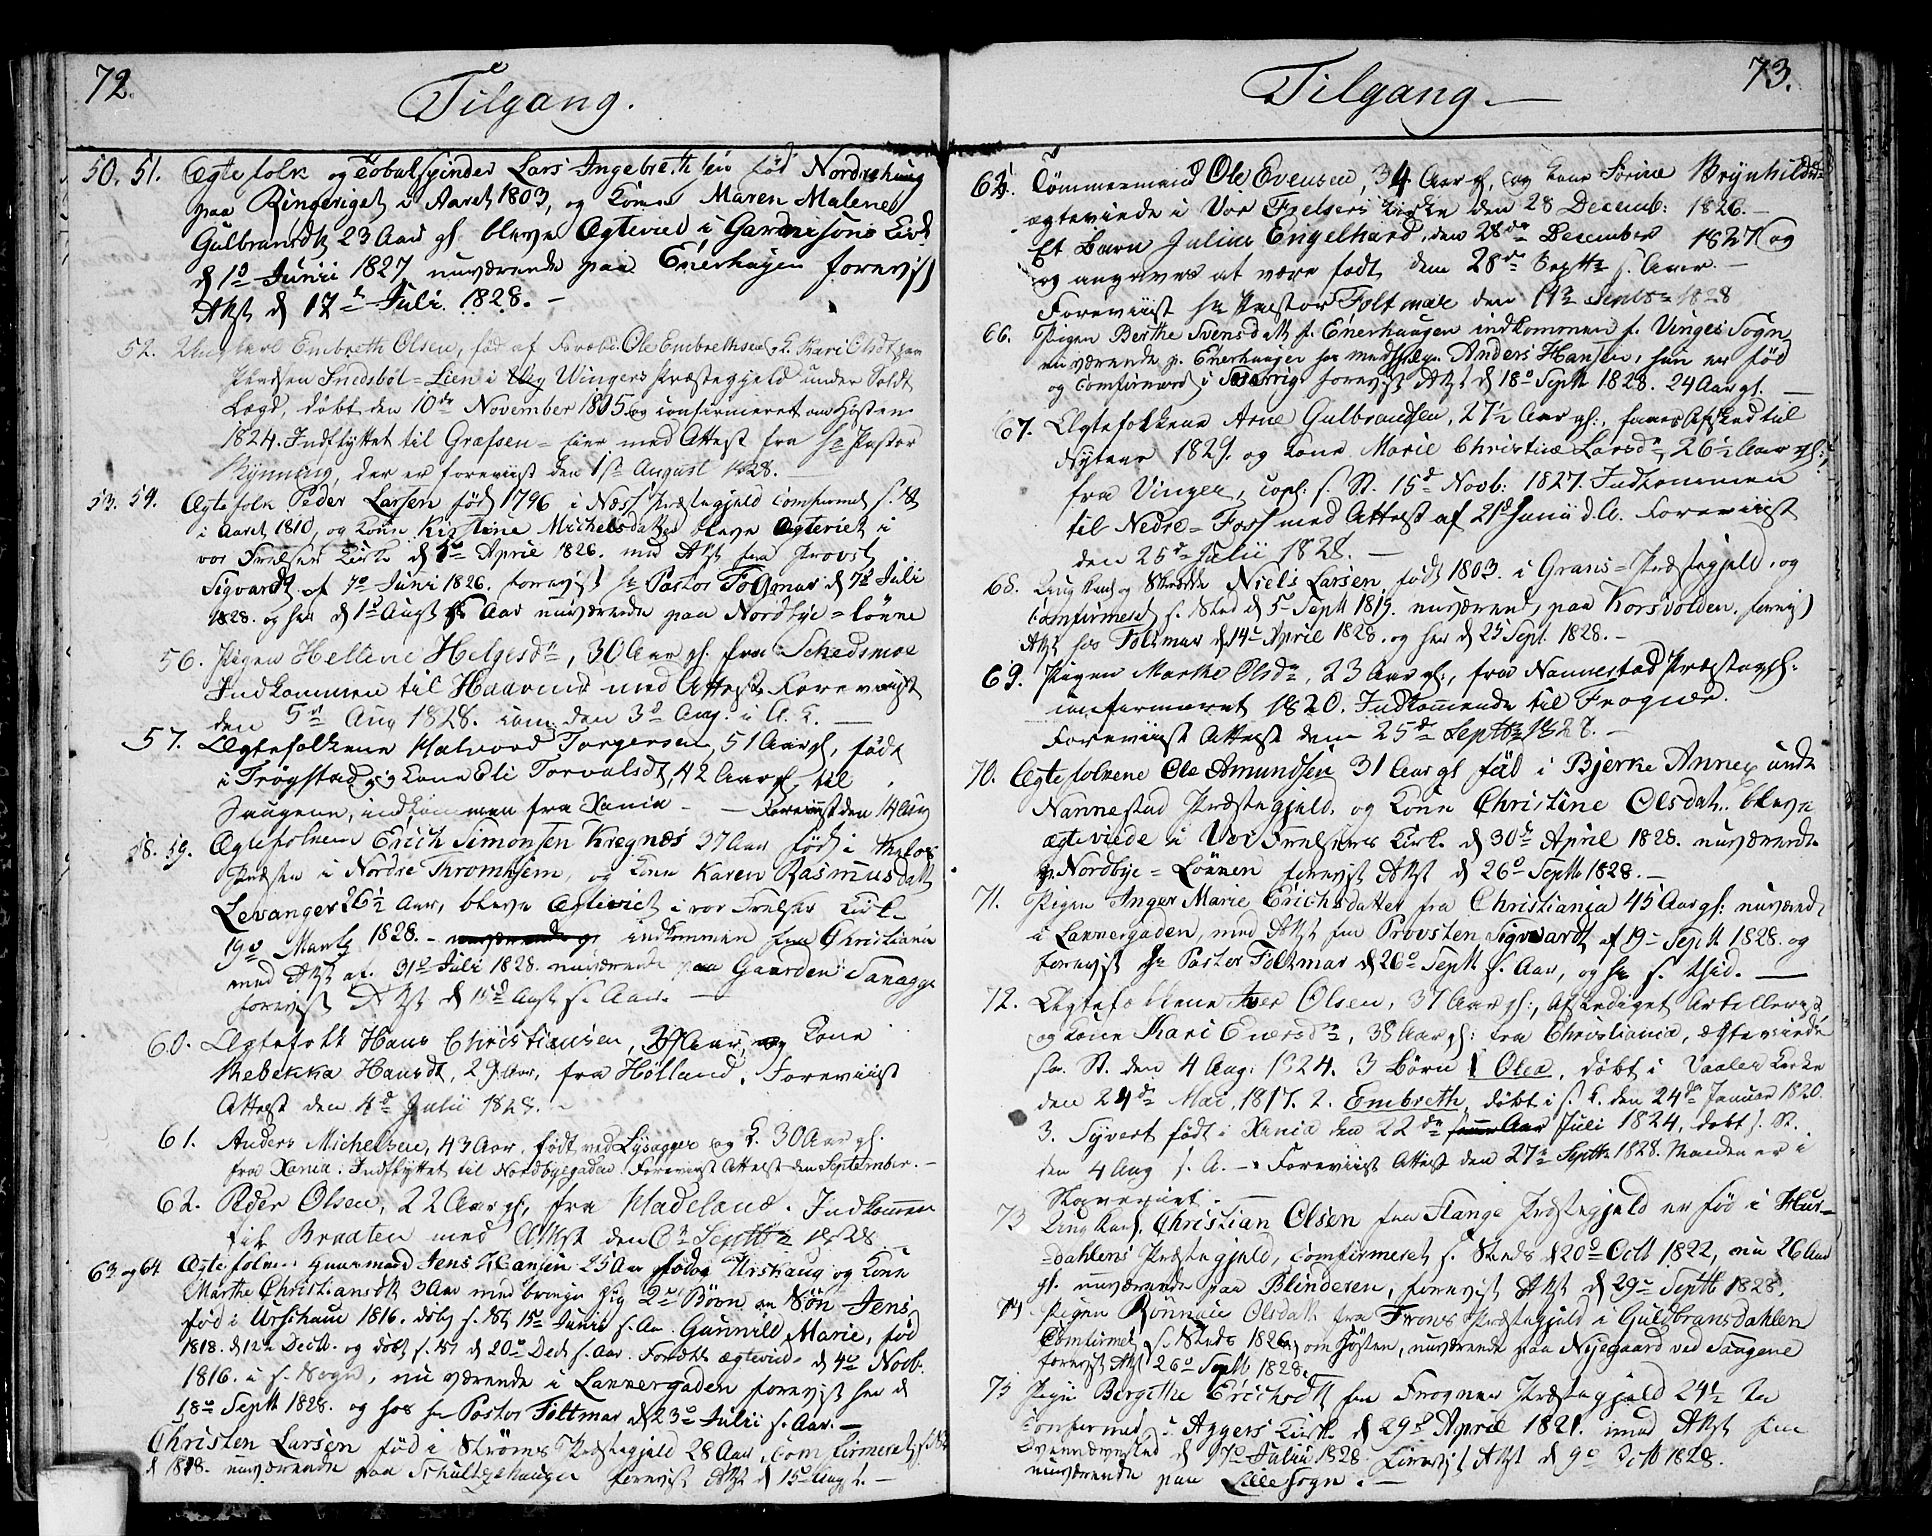 72.
Tilgang.
50. 51. Ægtefolk og Tobakspinder Lars Ingebrethsen fød Nordrehaug
paa Ringeriget i Aaret 1803, og Kone Maren Malene
Gulbrandsdt 23 Aar gl. bleve Ægteviet i Garnisons Kirke
d 1ste Junii 1827 nuværende paa Enerhagen forevist
Attst d 17de Juli 1828. –
52. Ungkarl Embreth Olsen, fød af Forældr. Ole Embrethsen, K. Kari Olsdt
Pladsen Snedsböl-Lien i Wingers Præstegjeld under Soldt
Lægd, döbt den 10de November 1805 og confirmeret om Hösten
1824. Indflyttet til Græsen-Eier med Attest fra Hr Pastor
Rynning, der er foreviist den 1ste August 1828.
53. 54. Ægtefolk Peder Larsen född 1796 i Næs Præstegjeld Comfirmet s. St
i Aaret 1810, og Kone Kirstine Michelsdatter bleve Ægteviet i
vor Frelsers Kirke d 5te April 1826. med Attst fra Provst
Sigvardt af 7de Juni 1826. forevist Hr Pastor Foltmar d 7de Juli
1828. og her d 1ste Augst s. Aar nuværende paa Nordbye-Lönne
56. Pigen Hellene Helgesdr, 30 Aar gl. fra Schedsmoe
Indkommen til med Attest Foreviist
den 5te Aug 1828. kom den 3d Aug. i A. K. –
57. Ægtefolkene Halvord Torgersen, 51 Aar gl, född
i Trögstad og Kone Eli Torvalsdt, 42 Aar gl, til
Saugene, indkommen fra Xania – Foreviist den 14 Aug
58. 59. Ægtefolkene Erich Simonsen Kregnæs 37 Aar född i
Præsten i Nordre Thromhjem, og Kone Karen Rasmusdatt
Levanger 26½ Aar, bleve Ægteviet i vor Frelser Kirke
19de Martz 1828. – indkommen fra Christiania
med Attst af 31te Juli 1828. nuværende paa Gaarden Tanagge
forevist Attst d 15de Augst s. Aar. –
60. Ægtefolk Hans Christiansen, Aar, og Kone
Rebekka Hansdt, 29 Aar, fra Hølland. Foreviist
Attest den 4de Julii 1828. –
61. Anders Michelsen, 43 Aar, född ved Lysager og K. 30 Aar gl.
fra Xania. Indflyttet til Nordbygaden. Foreviist Attest den September. –
62. Peder Olsen, 22 Aar gl, fra Hadeland. Indkommen
til Braaten med Attst den 6te Septbr 1828
63 og 64 Ægtefolkene Jens Hansen 25 Aar fød og Urskoug og Kone
Marthe Christiansdt Aar med bringer sig 2de Börn en Sön Jens
fød i Urschaug 1816. döbt s. St 15de Junii s. Aar. Gunnild Marie, fød
1818. d 12te Decbr. og döbt s. St d 20de Decb s. Aar. Ægteviede d 4de Novb.
1816. i s. Sogn, nu værende i Lannergaden forevist her d
18de Septb 1828. og hos Hr Pastor Foltmar d 23de Julii s. Aar. –
Christen Larsen fød i Strøms Præstegjeld 28 Aar, comfirmeret s. St
d 1818. nuværende paa Schultzehaugen forevist Attst d 15de Augst. –
73.
Tilgang. –
65. Tömmermand Ole Evensen, 34 Aar gl, og Kone Sörine Brynhildsd
ægteviede i Vor Frelsers Kirke den 28 Decemb: 1826. –
Et Barn Julius Engelhard, den 28de December 1827 og
og angives at være född den 28de Septbr s. Aar. –
Foreviist Hr Pastor Foltmar den 11te Septbr 1828
66. Pigen Berthe Svensdatt p. Enerhaugen indkommen f. Vinges Sogn,
nuværende p. Enerhaugen hos Anders Hansen, hun er fød
og Comfirmerd i Sverrig forevist Attst d 18de Septb 1828. 24 Aar gl. –
67. Ægtefolkene Arne Gulbrandsen, 27½ Aar gl:, faaer Afsked til
Nytaar 1829. og Kone Marie Christine Larsdr, 26½ Aar gl:
fra Vinger, copl: s. St. 15de Novb: 1827. Indkommen
til Nedre-Foss med Attest af 21de Junii d. A. Foreviist
den 25de Julii 1828. –
68. Ung Karl og Skredder Niels Larsen född 1803. i Grans-Præstegjeld, og
Comfirmeret s. Sted d 5te Septb 1819. nuværende paa Korsvolden, forevist
Attst hos Foltmar d 14de April 1828. og her d 25 Sept. 1828. –
69. Pigen Marthe Olsdr, 23 Aar gl:, fra Nannestad Præstegjl:
confirmeret 1820. Indkommende til Frogner.
Foreviist Attest den 25de Septbr 1828. –
70. Ægtefolkene Ole Amundsen 31 Aar gl fød i Bjerke Annex unde
Nannestad Præstegjeld, og Kone Christine Olsdat. bleve
ægteviede i Vor Frelsers Kirke d 30te April 1828. nuværende
p. Nordbye-Lönnen forevist Attst d 26de Septb 1828. –
71. Pigen Inger Marie Erichsdatter fra Christiania 45 Aar gl: nuværende
i Lannergaden, med Attst fra Provsten Sigvardt af 19de Septb 1828. og
forevist Hr Pastor Foltmar d 26de Septb s. Aar, og s. tid. –
72. Ægtefolkene Iver Olsen, 37 Aar gl:, Afskediget Artillerist
og Kone Kari Enersdr, 38 Aar gl: fra Christiania, ægteviede
sa. St. den 4 Aug: 1824. 3 Börn 1 Olea, döbt i Vaaler Kirke
den 24de Mai, 1817. 2. Embreth, döbt i s. K. den 24de Januar 1820.
3. Syvert född i Xania den 22de Juli 1824, döbt s. St.
den 4 Aug s. A. – Foreviist Attest den 27de Septbr 1828. Manden er i
Slaveriet. –
73 Ung Karl Christian Olsen fra Stange Præstegjeld er fød i Hur-
dahlens Præstegjeld, Comfirmeret s. Steds d 20de Octb 1822, nu 26 Aar
gl. nuværende paa Blinderen, forevist Attst d 29de Septb 1828.
74 Pigen Rönnau Olsdatt fra Frons Præstegjeld i Guldbransdahlen
Comfirmet s. Steds 1826 om Hösten, nuværende paa Nyegaard ved Saugene
forevist Attst 26de Septb 1828.
75 Pige Bergethe Erichsdtt fra Frogner Præstegjeld 24½ Aar
Confirmet i Aggers Kirke d 29de April 1821. med Attst fra
d 17de Julii 1828. Attst d 9de Octb 1828.
nuværende paa Lille Sogn. –